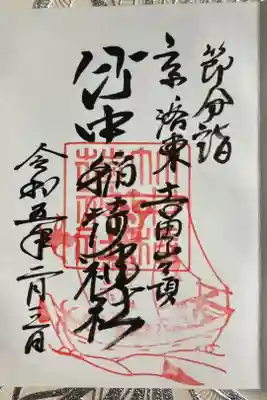 節分詣
京洛東吉田山頂
竹中稲荷神社
令和五年二月三日